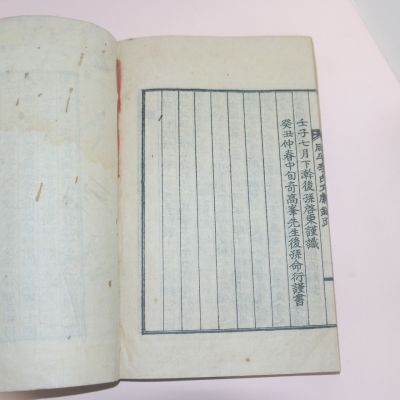 壬子七月下澣後孫啓東謹識
癸丑仲春中旬奇高峯先生後孫命衍謹書